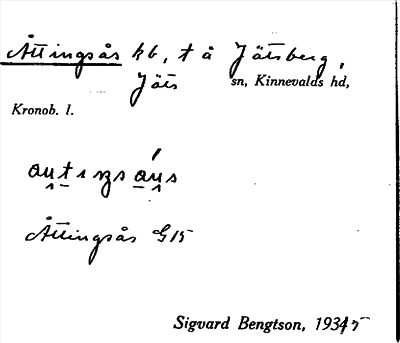 Åttingsås hb, t å Jätsberg,
Jäts sn, Kinnevalds hd,
Kronob. l.
Åttingsås G15
Sigvard Bengtson, 1934